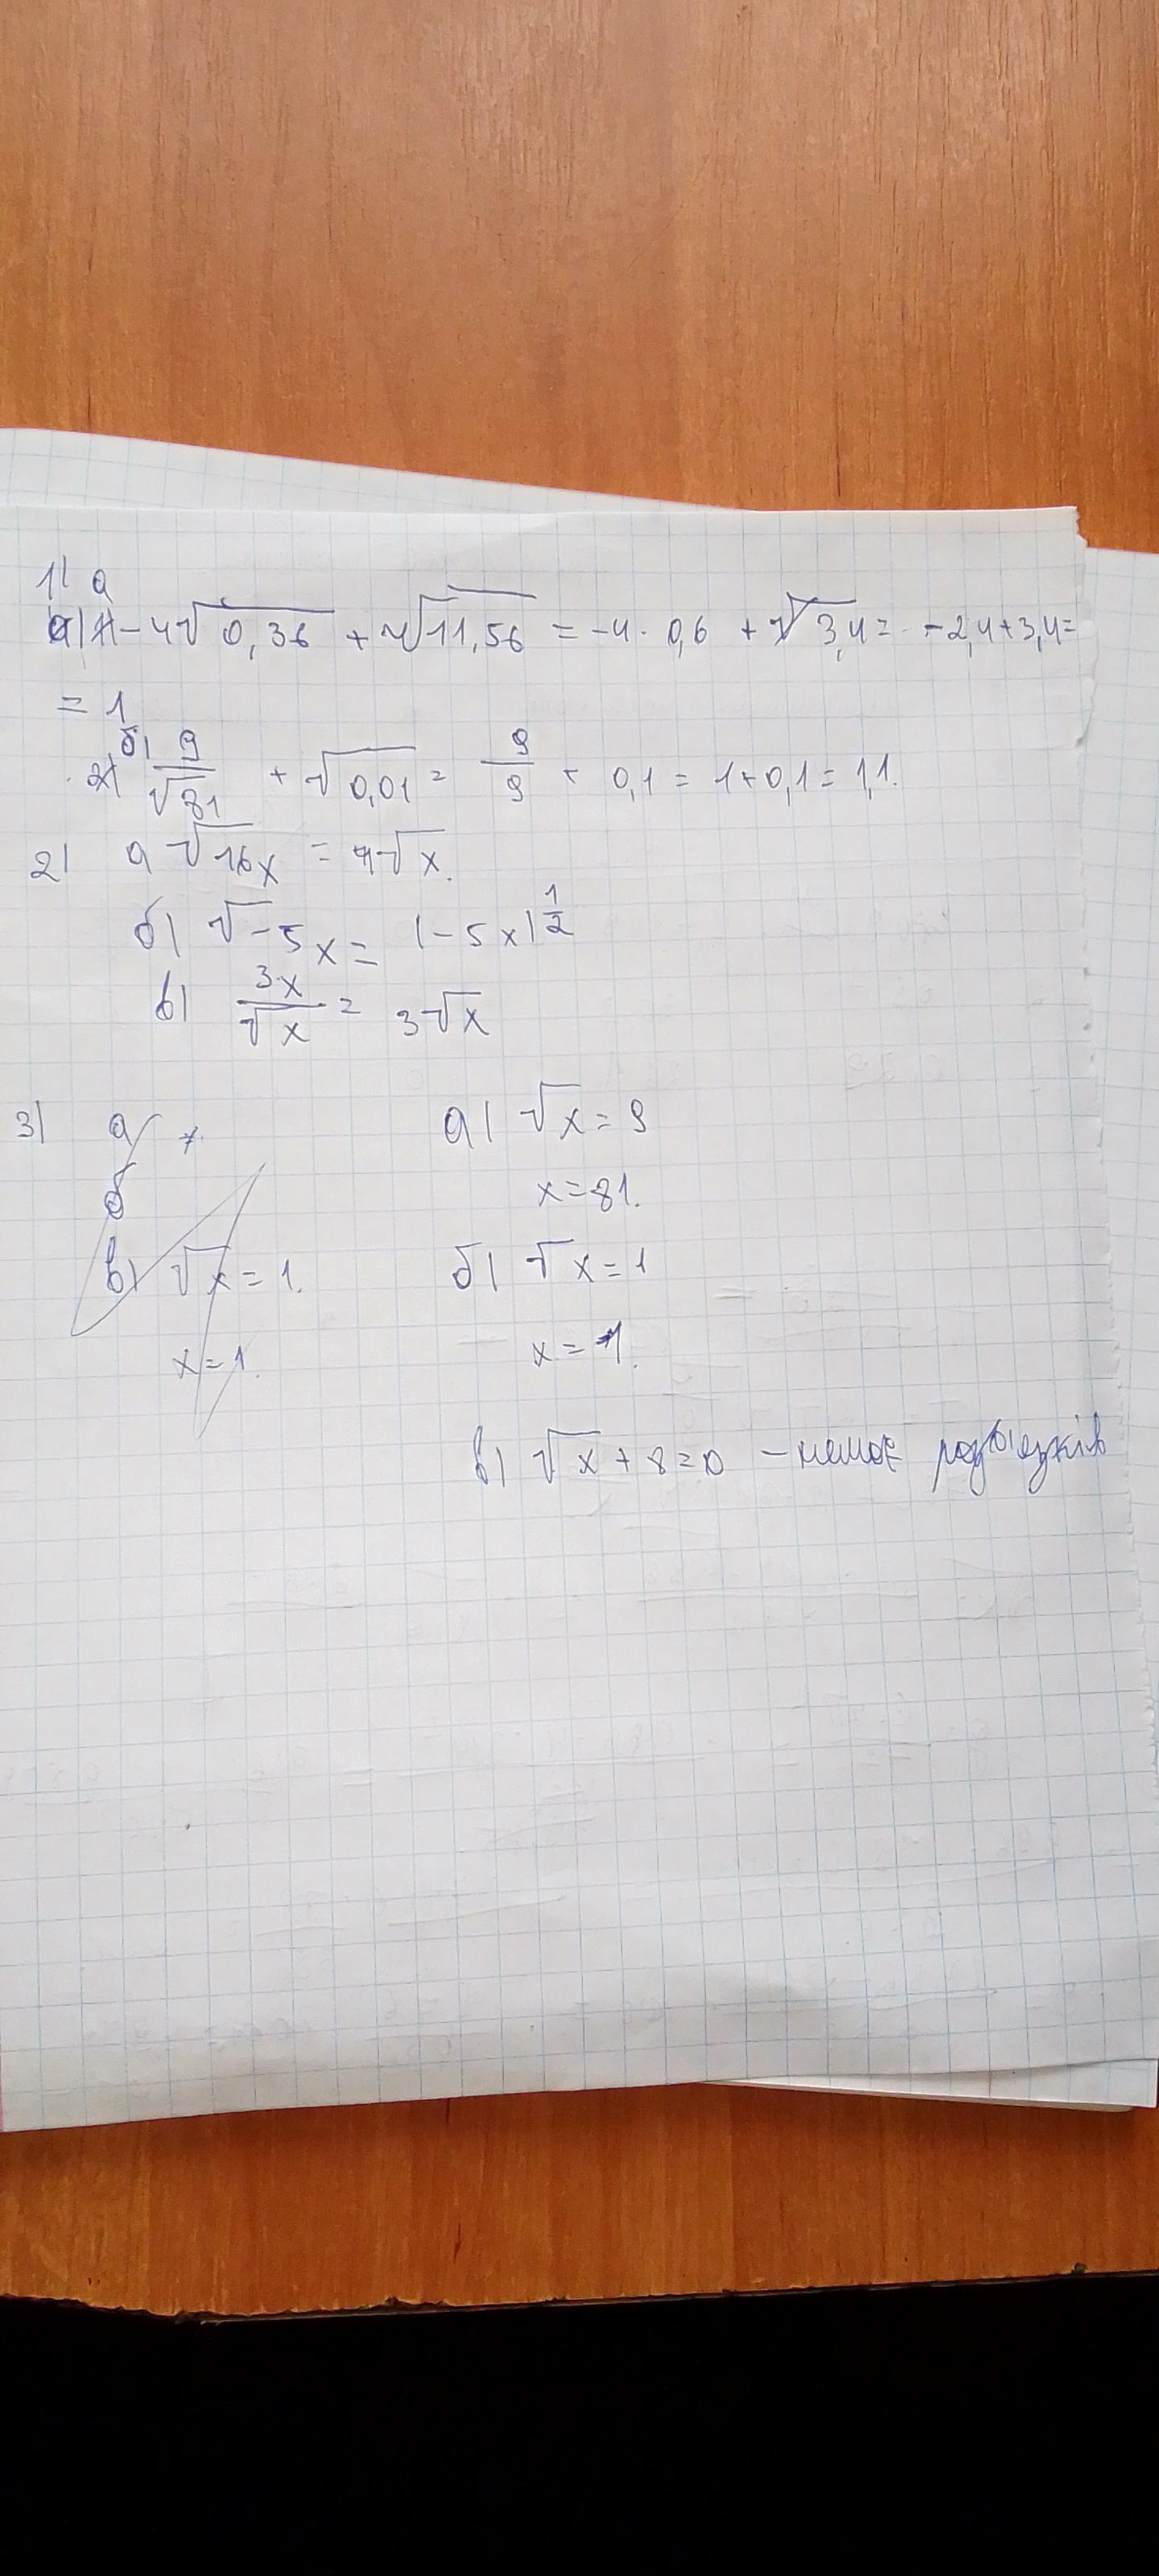 1) а
а) -4√0,36 + √11,56 = -4 · 0,6 + √3,4 = -2,4+3,4=
= 1
б) 9/√81 + √0,01 = 9/9 + 0,1 = 1+0,1=1,1.
2) а √16x = 4√x.
б) √-5x = (-5x)^1/2
в) 3x/√x = 3√x
3) а x
б
в) √x = 1.
x=1.
а) √x = 9
x=81.
б) √x=1
x=1.
в) √x + 8=0 – немає розв'язків